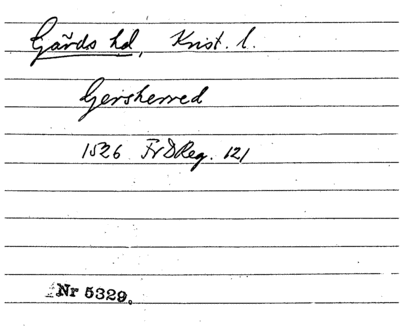 Gärds hd, Krist. l.
Gersherred
1526 FrDReg. 121
Nr 5329.